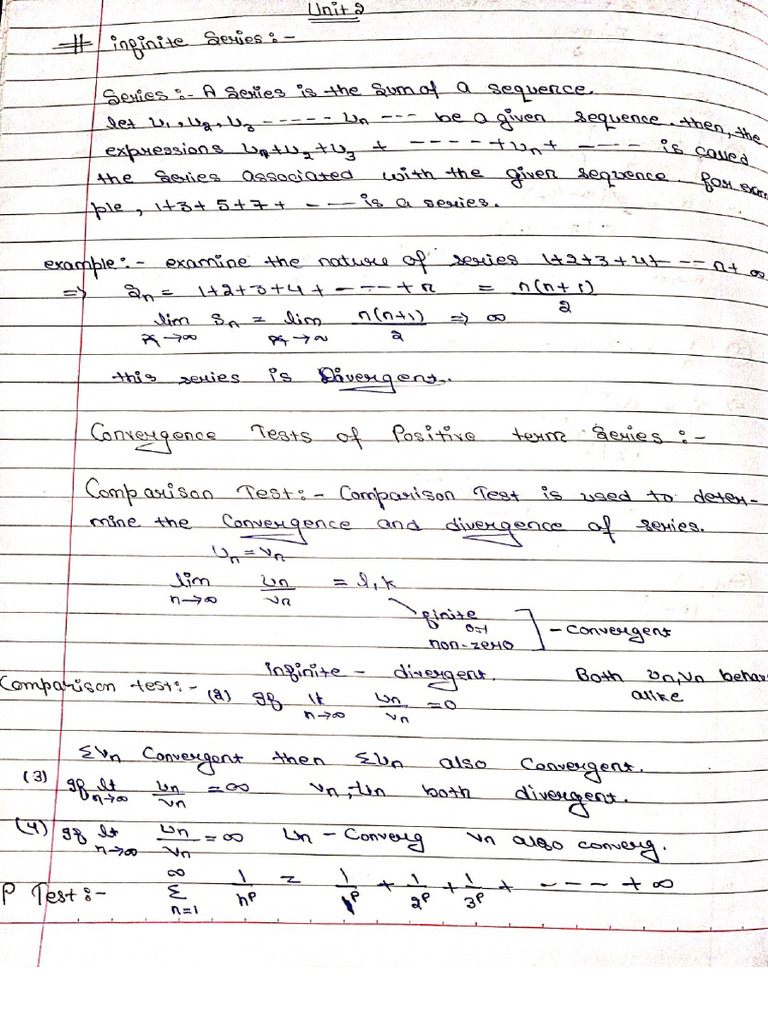 Unit 2
# infinite Series:-
Series:- A Series is the Sum of a sequence.
let u1, u2, u3 ----- un --- be a given sequence. then, the
expressions u1+u2+u3 + -----+un+ --- is called
the Series associated with the given sequence. for exam
ple, 1+3+5+7+ --- is a series.
example:- examine the nature of series 1+2+3+4+ --- n+ ∞
=> Sn = 1+2+3+4+ ----+n = n(n+1)/2
lim n→∞ Sn = lim n→∞ n(n+1)/2 => ∞
this series is Divergent.
Convergence Tests of Positive term Series:-
Comparison Test:- Comparison Test is used to deter-
mine the Convergence and divergence of series.
Un = Vn
lim n→∞ un/vn = l, k
finite
non-zero - convergent
infinite - divergent. Both un, vn behav
alike
Comparison test:- (2) If lt n→∞ un/vn = 0
ΣVn Convergent then ΣUn also Convergent.
(3) If lt n→∞ un/vn = ∞ Vn, Un both divergent.
(4) If lt n→∞ un/vn = ∞ Un - Converg Vn also converg.
P Test:- ∞ Σ n=1 1/n^p = 1/1^p + 1/2^p + 1/3^p + ---- + ∞